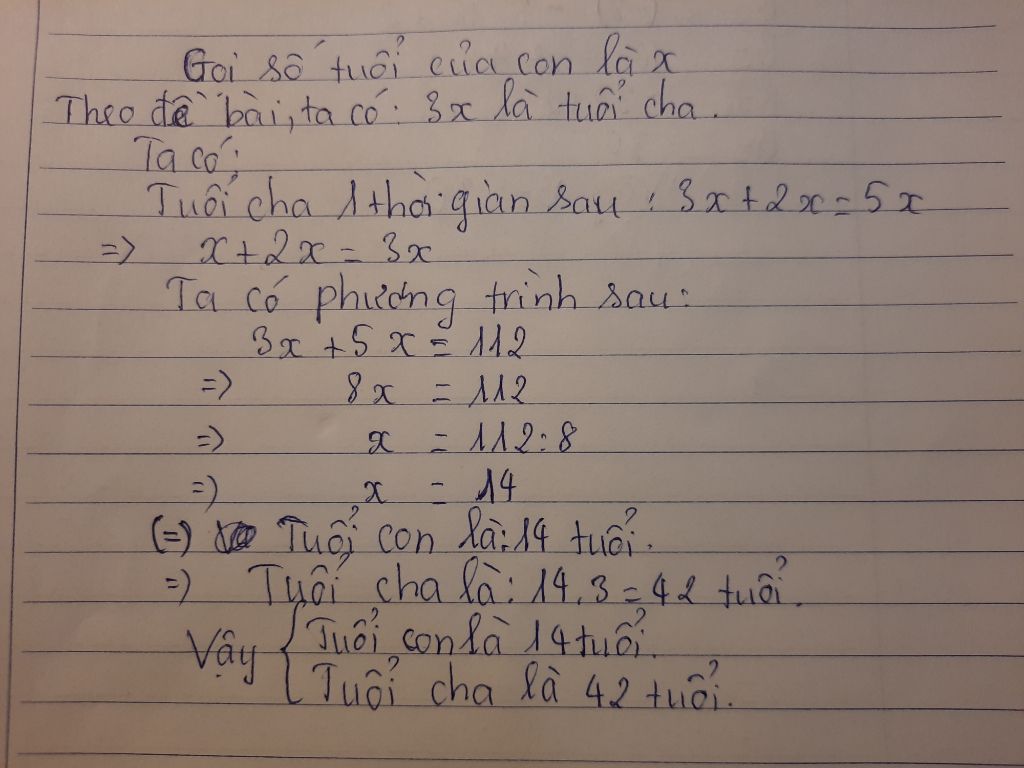 Gọi số tuổi của con là x
Theo đề bài, ta có: 3x là tuổi cha.
Ta có:
Tuổi cha 1 thời gian sau: 3x + 2x = 5x
=> x + 2x = 3x
Ta có phương trình sau:
3x + 5x = 112
=> 8x = 112
=> x = 112:8
=> x = 14
(=) Tuổi con là: 14 tuổi.
=> Tuổi cha là: 14.3 = 42 tuổi.
Vậy { Tuổi con là 14 tuổi.
Tuổi cha là 42 tuổi.